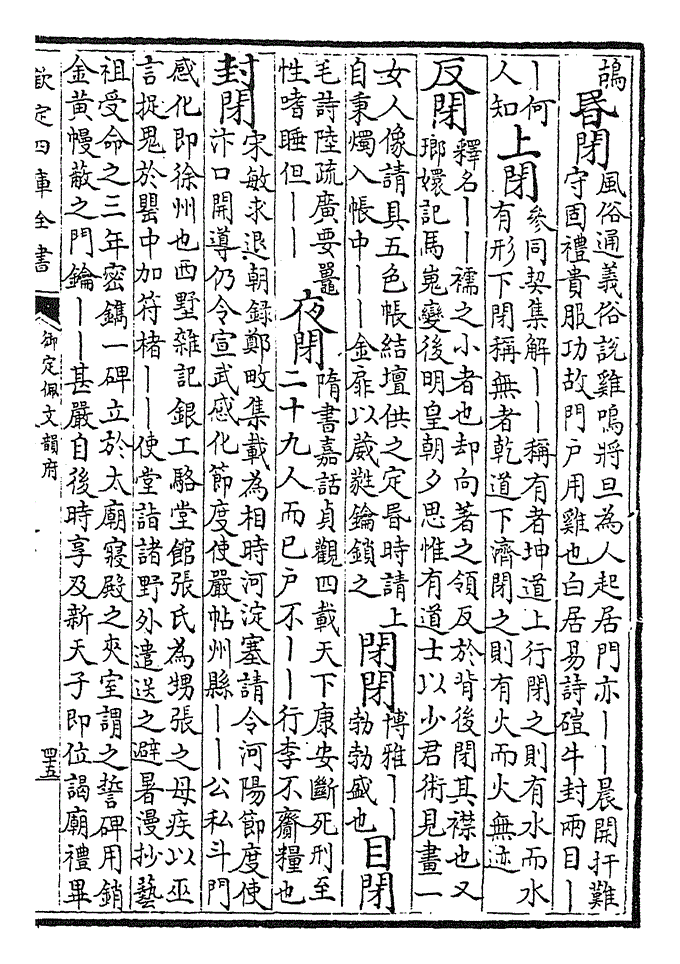 鴣
昬閉
風俗通義俗說雞鳴將旦為人起居門亦——晨開扞難
守固禮貴服功故門戶用雞也白居易詩磑牛封兩目—
—何
人知
上閉
參同契集解——稱有者坤道上行閉之則有水而水
有形下閉稱無者乾道下濟閉之則有火而火無迹
反閉
釋名——襦之小者也却向著之領反於背後閉其襟也又
瑯嬛記馬嵬變後明皇朝夕思惟有道士以少君術見畫一
女人像請具五色帳結壇供之定昬時請上
自秉燭入帳中——金扉以葳蕤鑰鎖之
閉閉
博雅——
勃勃盛也
目閉
毛詩陸疏廣要鼉
性嗜睡但——
夜閉
隋書嘉話貞觀四載天下康安斷死刑至
二十九人而巳户不——行李不齎糧也
封閉
宋敏求退朝録鄭畋集載為相時河淀塞請令河陽節度使
汴口開導仍令宣武感化節度使嚴帖州縣——公私斗門
感化即徐州也西墅雜記銀工駱堂館張氏為甥張之母疾以巫
言捉鬼於罌中加符楮——使堂詣諸野外遣送之避暑漫抄藝
祖受命之三年密鐫一碑立於太廟寢殿之夾室謂之誓碑用銷
金黄幔蔽之門鑰——甚嚴自後時享及新天子即位謁廟禮畢
欽定四庫全書
御定佩文韻府
四十五